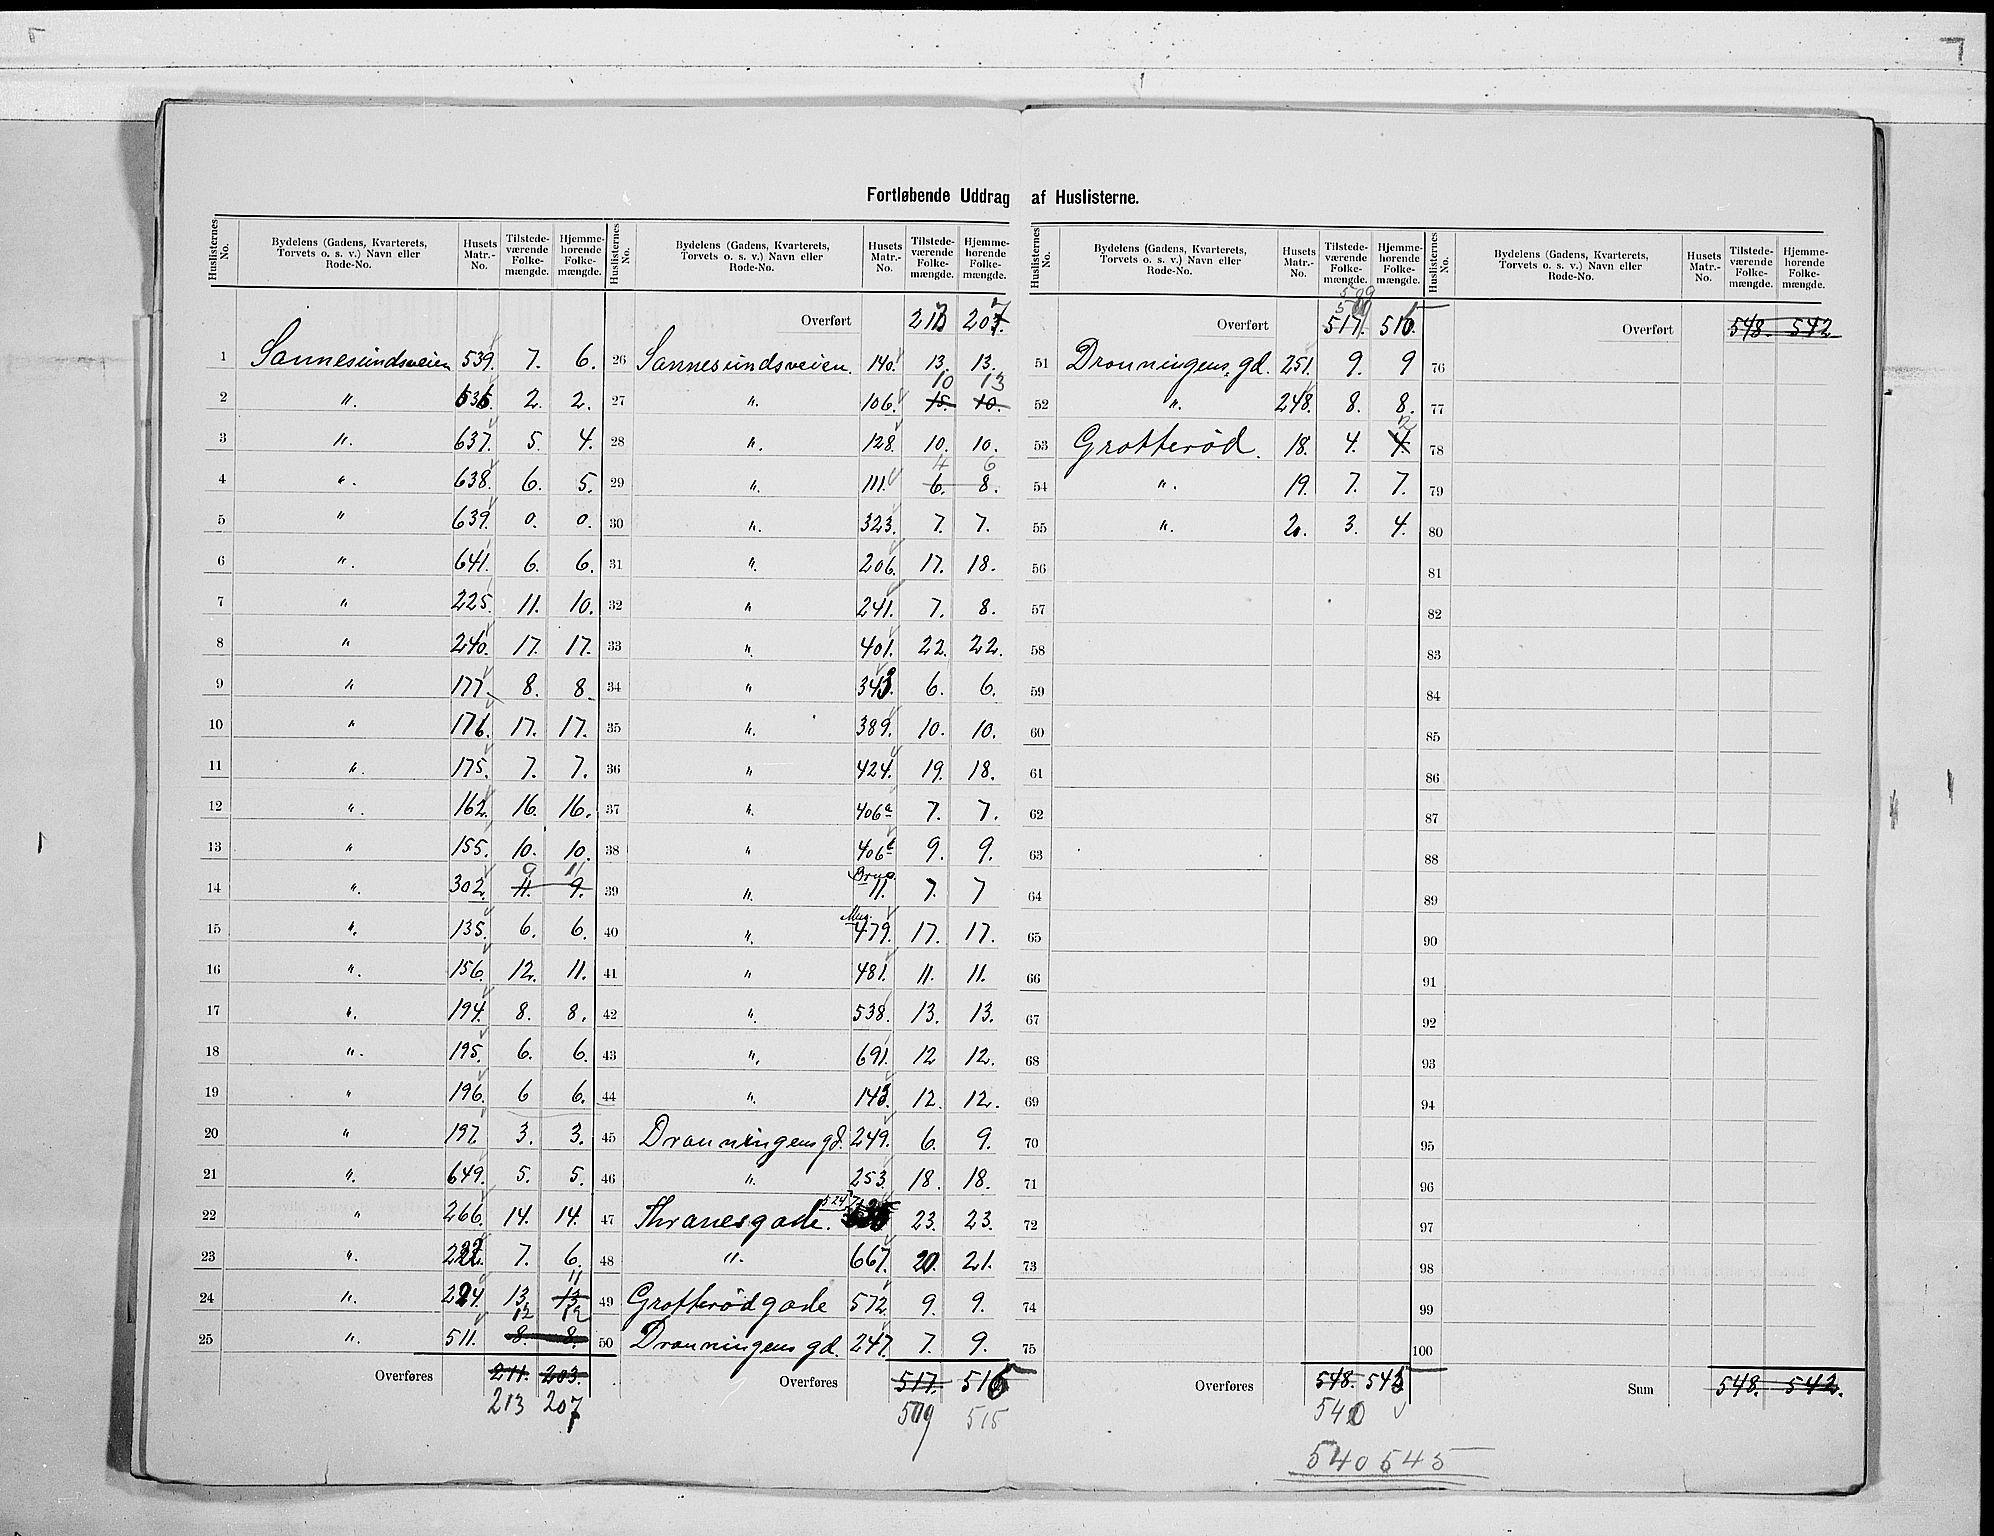 Fortløbende Uddrag af Huslisterne.
Huslisternes No. Bydelens (Gadens, Kvarterets, Torvets o. s. v.) Navn eller Rode-No. Husets Matr.-No. Tilstede-værende Folke-mængde. Hjemme-hørende Folke-mængde.
1 Sannesundsveien 539. 7. 6.
2 ". 2. 2.
3 ". 637. 5. 4.
4 ". 638. 6. 5.
5 " 639. 0. 0.
6 ". 641. 6. 6.
7 " 225. 11. 10.
8 " 240. 17. 17.
9 " 177. 8. 8.
10 " 176. 17. 17.
11 ". 175. 7. 7.
12 ". 162. 16. 16.
13 " 155. 10. 10.
9 11
14 ". 302. 11. 9.
15 ". 135. 6. 6.
16 ". 156. 12. 11.
17 ". 194. 8. 8.
18 ". 195. 6. 6.
19 " 196. 6 6.
20 " 197. 3. 3.
21 ". 649. 5. 5.
22 " 266. 14. 14.
23 ". 7. 6.
11
24 ". 224. 13. 13.
12 12
25 ". 511. 8. 8.
Overføres 211. 203.
213 207
Huslisternes No. Bydelens (Gadens, Kvarterets, Torvets o. s. v.) Navn eller Rode-No. Husets Matr.-No. Tilstede-værende Folke-mængde. Hjemme-hørende Folke-mængde.
Overført 213 207
26 Sannesundsveien. 140. 13. 13.
10 13
27 ". 106. 15. 10.
28 ". 128. 10. 10.
4 6
29 ". 111. 6. 8.
30 ". 323. 7. 7.
31 ". 206. 17. 18.
32 " 241. 7. 8.
33 ". 401. 22. 22.
34 " 343. 6. 6.
35 ". 389. 10. 10.
36 " 424. 19. 18.
37 ". 406a 7. 7.
38 " 406b 9. 9.
39 ". 11. 7. 7
40 ". 479. 17. 17.
41 " 481. 11. 11.
42 ". 538. 13. 13.
43 ". 691. 12 12.
44 ". 143. 12. 12.
45 Dronningens gd. 249. 6. 9.
46 ". 253. 18. 18.
47 Thranesgade. 23. 23.
48 ". 667. 20. 21.
49 Grotterødgade 572. 9. 9.
50 Dronningens gd. 247. 7. 9.
Overføres 517. 516
509 515
Huslisternes No. Bydelens (Gadens, Kvarterets, Torvets o. s. v.) Navn eller Rode-No. Husets Matr.-No. Tilstede-værende Folke-mængde. Hjemme-hørende Folke-mængde.
509
Overført 517. 516.
51 Dronningens gd. 251. 9. 9
52 ". 248. 8. 8.
2
53 Grotterød. 18. 4. 4.
54 ". 19. 7. 7.
55 ". 20. 3. 4.
56
57
58
59
60
61
62
63
64
65
66
67
68
69
70
71
72
73
74
75
Overføres 548. 545
540
540 545
Huslisternes No. Bydelens (Gadens, Kvarterets, Torvets o. s. v.) Navn eller Rode-No. Husets Matr.-No. Tilstede-værende Folke-mængde. Hjemme-hørende Folke-mængde.
Overført 548. 542
76
77
78
79
80
81
82
83
84
85
86
87
88
89
90
91
92
93
94
95
96
97
98
99
100
Sum 548. 542.